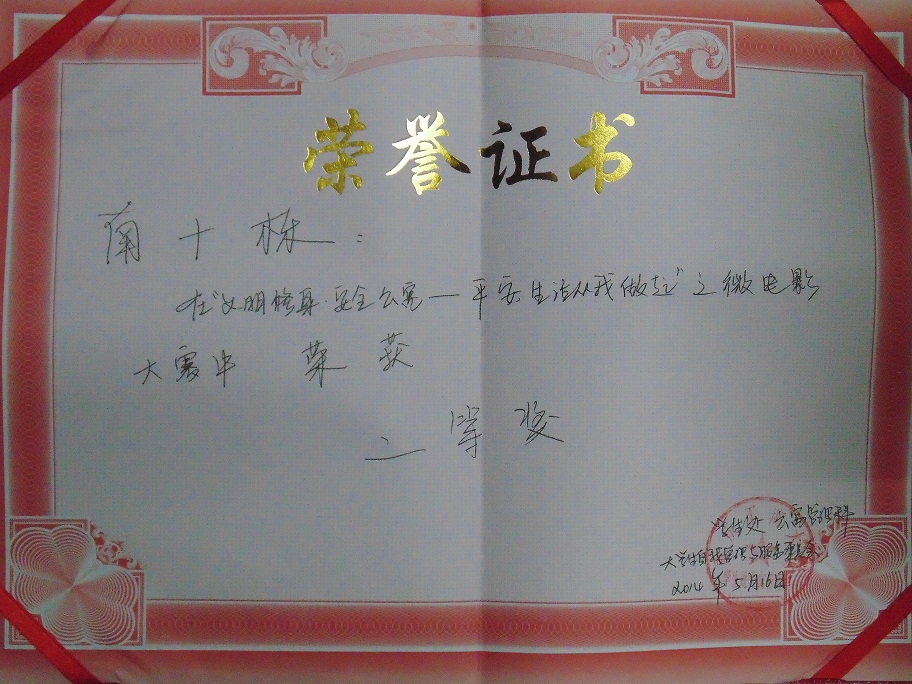 荣誉证书
南十栋:
在"文明修身·安全公寓—平安生活从我做起"之微电影
大赛中 荣获
二等奖
学生处 公寓管理科
大学生自我管理与服务委员会
2014年5月16日